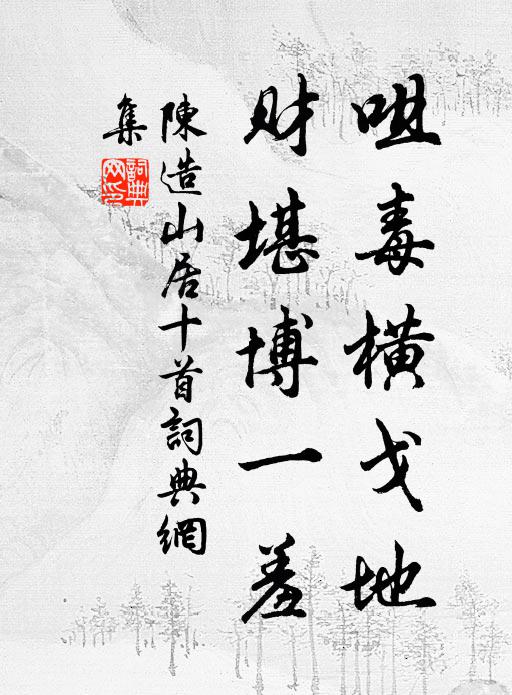 咀毒橫戈地
財堪博一羞
陳造山居十首詞典網
集
詞典網印